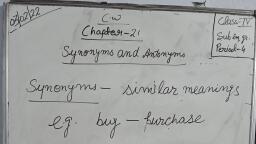 03/02/22
C.W
Chapter-21
Synonyms and Antonyms
Class-IV
Sub Eng.
Period-4
Synonyms - similar meanings
e.g. buy - purchase